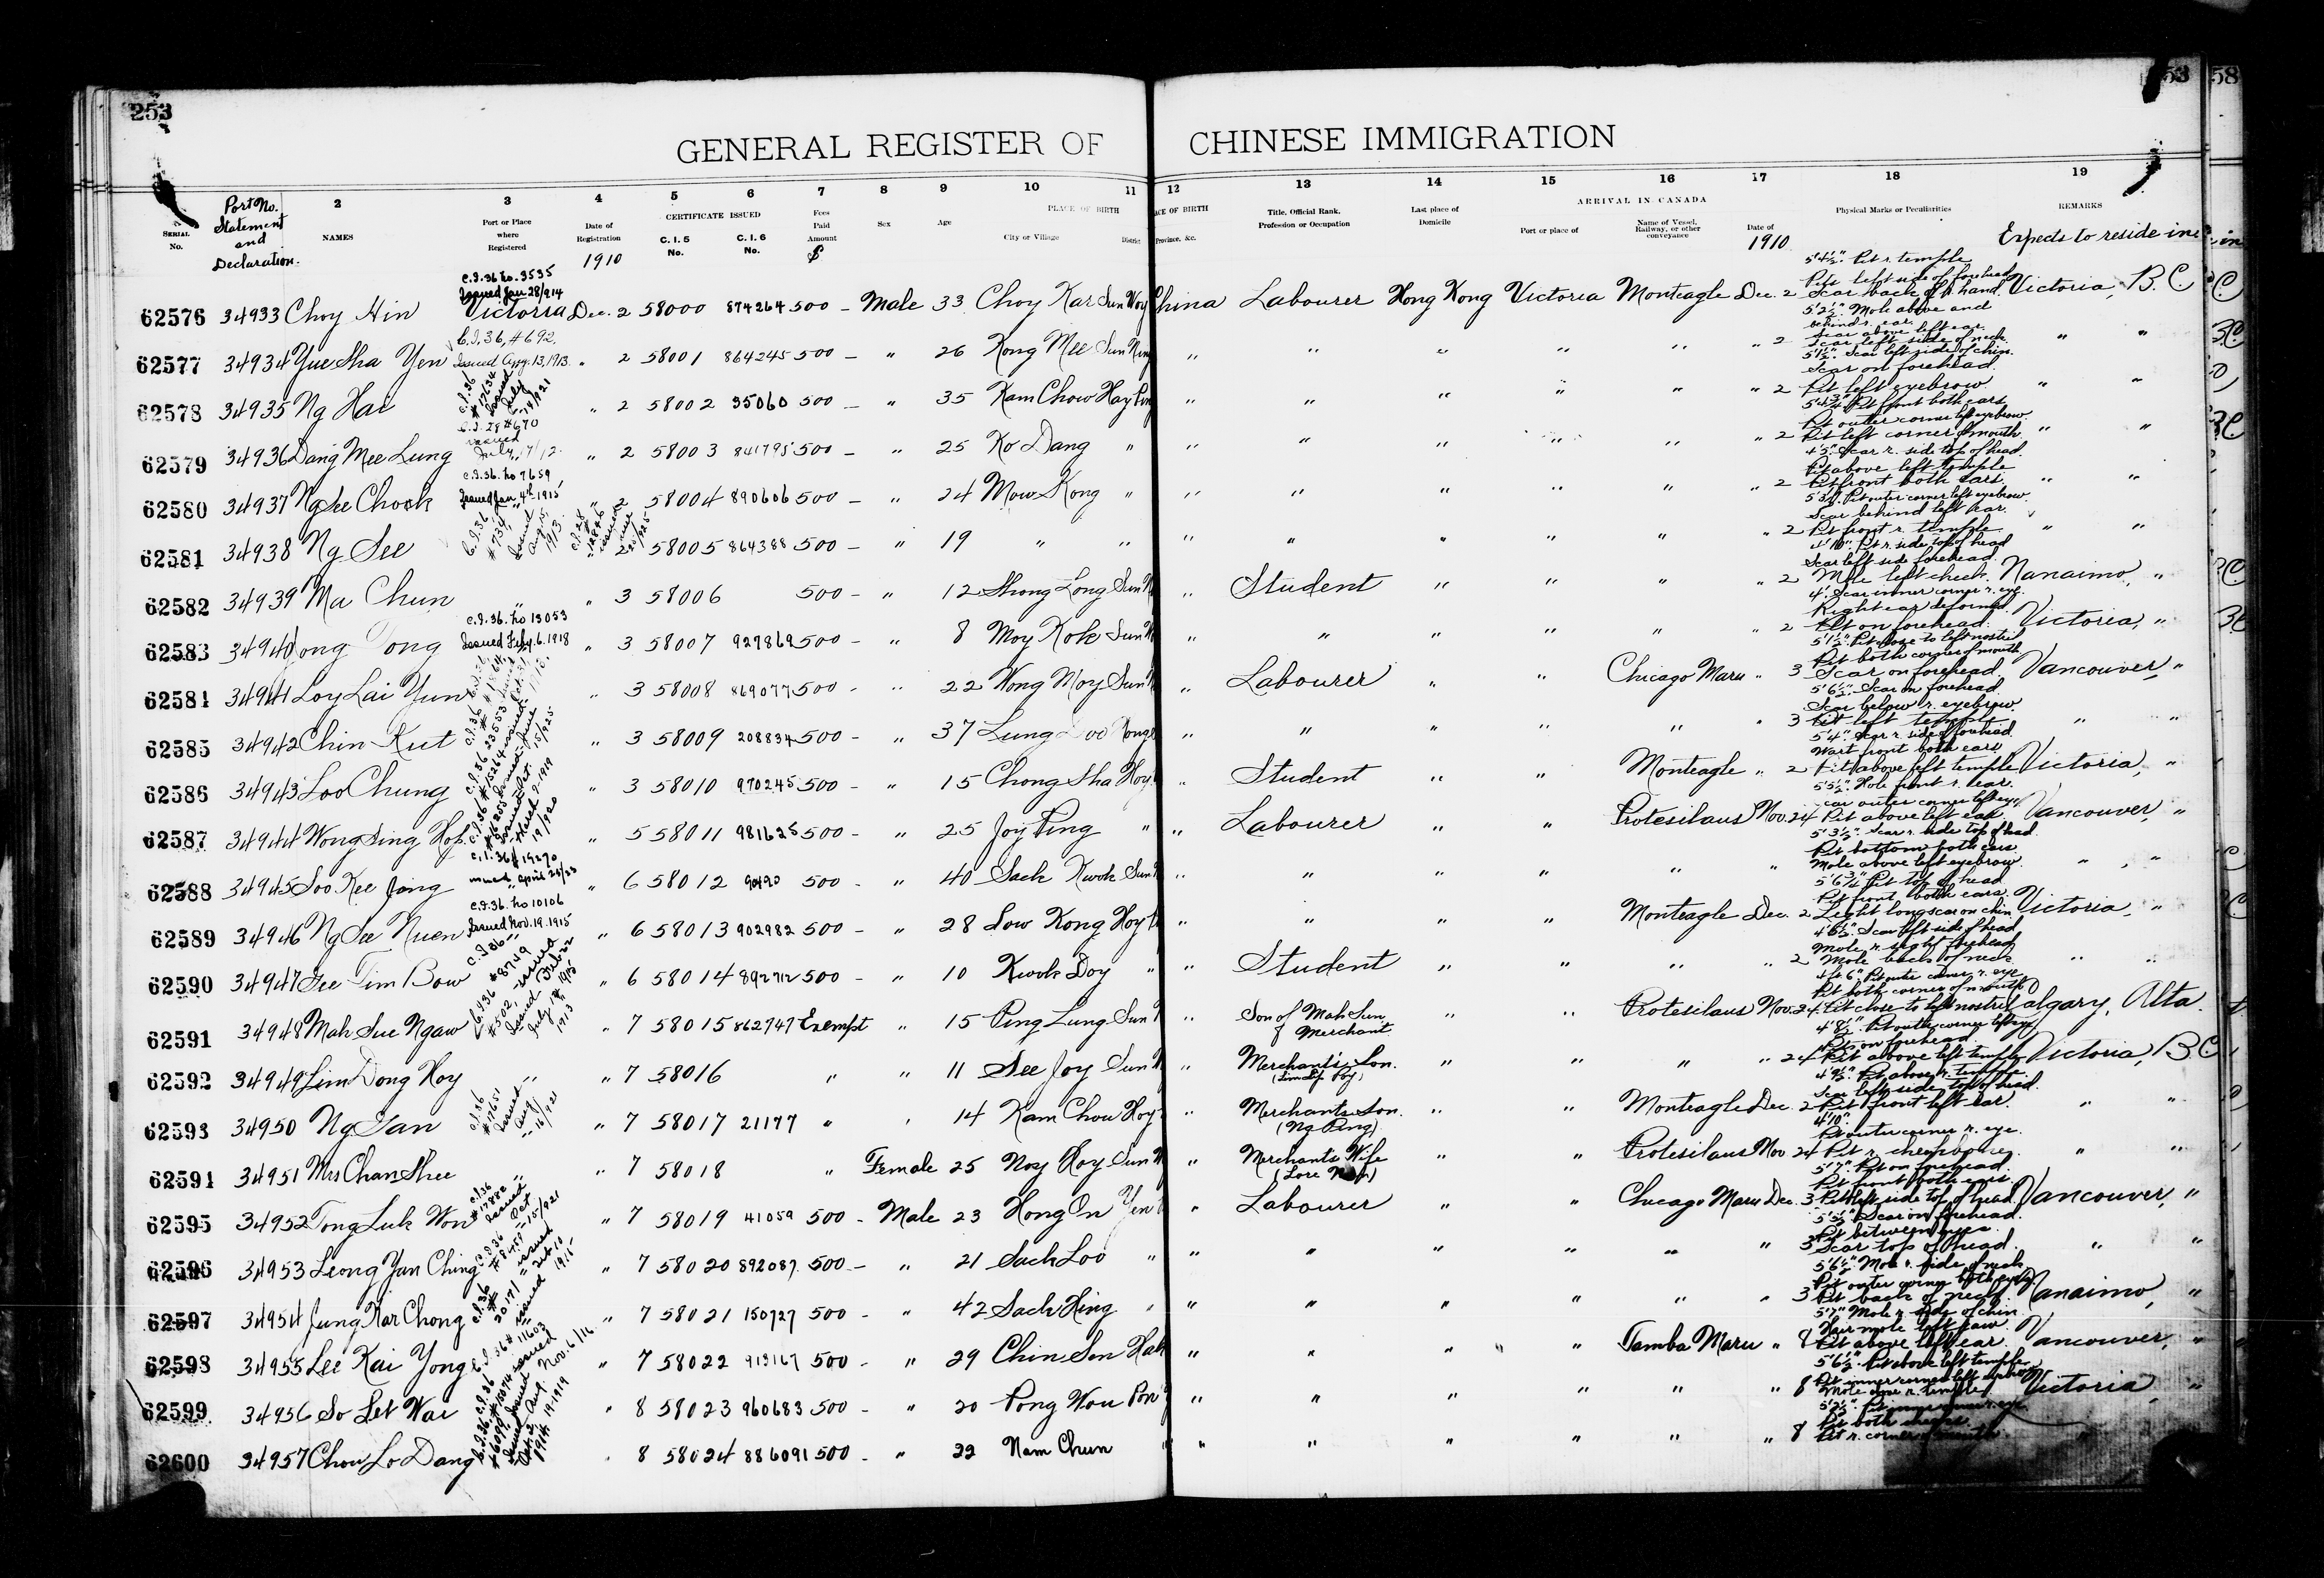 253
53
58
GENERAL REGISTER OF CHINESE IMMIGRATION
SERIAL No.
Port No. Statement and Declaration.
2 NAMES
3 Port or Place where Registered
4 Date of Registration 1910
CERTIFICATE ISSUED
5 C. I. 5 No.
6 C. I. 6 No.
7 Fees Paid Amount $
8 Sex
9 Age
PLACE OF BIRTH
10 City or Village
11 District
12 Province, &c.
13 Title, Official Rank, Profession or Occupation
14 Last place of Domicile
ARRIVAL IN CANADA
15 Port or place of
16 Name of Vessel, Railway, or other conveyance
17 Date of 1910
18 Physical Marks or Peculiarities
19 REMARKS
Expects to reside in
C.I.36 No. 3535 Issued Jan 28/914
62576 34933 Choy Hin Victoria Dec. 2 58000 874264 500 – Male 33 Choy Kar Sun Woy China Labourer Hong Kong Victoria Monteagle Dec. 2 5'4½". Pit r. temple Pits left side of forehead Scar back of r. hand. Victoria, B.C
62577 34934 Yue Sha Yen C.I.36, #692, Issued Aug. 13, 1913. " 2 58001 864245 500 – " 26 Kong Mee Sun Ning " " " " " " 2 5'2½". Mole above and behind r. ear. Scar above left ear. Scar left side of neck. " "
62578 34935 Ng Hai C.I.36 #17634 Issued July 14/921 " 2 58002 35060 500 – " 35 Kam Chow Hay Ping " " " " " " 2 5'1½". Scar left side of chin. Scar on forehead. Pit left eyebrow " "
62579 34936 Dang Mee Lung C.I.28 #670 issued July 17/12. " 2 58003 841795 500 – " 25 Ko Dang " " " " " " " 2 5'4¾" Pit front both ears Pit outer corner left eyebrow Pit left corner of mouth " "
62580 34937 Ng See Chook C.I.36. No 7659 Issued Jan 4th 1915 " 2 58004 890606 500 – " 24 Mow Kong " " " " " " " 2 4'5". Scar r. side top of head. Pit above left temple Pit front both ears. " "
62581 34938 Ng See 2 58005 864388 500 – " 19 " " " " " " " " 2 5'3½". Pit outer corner left eyebrow. Scar behind left ear. Pit front r. temple " "
62582 34939 Ma Chun " " 3 58006 500 – " 12 Shong Long Sun " Student " " " " 2 4'10". Pit r. side top of head Scar left side forehead. Mole left cheek. Nanaimo, "
62583 34940 ong Tong C.I.36. No 13053 Issued Feby. 6. 1918 " 3 58007 927869 500 – " 8 Moy Kok Sun " " " " " " 2 4'. Scar inner corner r. eye. Right ear deformed. Pit on forehead. Victoria, "
62584 34941 Loy Lai Yun " 3 58008 869077 500 – " 22 Wong Moy Sun " Labourer " " Chicago Maru " 3 5'1½". Pit close to left nostril Pit both corner of mouth Scar on forehead. Vancouver, "
62585 34942 Chin Kut " 3 58009 208834 500 – " 37 Lung Doo " " " " " " 3 5'6½". Scar on forehead. Scar below r. eyebrow Pit left temple " "
62586 34943 Loo Chung " 3 58010 970245 500 – " 15 Chong Sha Hoy " Student " " Monteagle " 2 5'4". Scar r. side of forehead Wart front both ears Pit above left temple Victoria, "
62587 34944 Wong Sing Hop " 5 58011 981625 500 – " 25 Joy Ping " " Labourer " " Protesilaus Nov. 24 5'5½". Hole front r. ear. Scar outer corner left eye Pit above left ear. Vancouver, "
62588 34945 Soo Kee Jong C.I.36 # 19270 issued April 28/23 " 6 58012 90490 500 – " 40 Sack Kwok Sun " " " " " " 5'3½". Scar r. side top of head. Pit bottom both ears. Mole above left eyebrow. " "
62589 34946 Ng See Nuen C.I.36. No 10106 Issued Nov. 19. 1915 " 6 58013 902982 500 – " 28 Low Kong Hoy " " " " Monteagle Dec. 2 5'6¾" Pit top of head Pit front both ears. Light long scar on chin Victoria, "
62590 34947 See Tim Bow C.I.36 #8749 issued " 6 58014 892712 500 – " 10 Kwok Doy " " Student " " " " 2 4'6½". Scar left side of head Mole r. sight forehead Mole back of neck. " "
62591 34948 Mah Sue Ngaw C.I.36 #502, Issued July 18 1913 " 7 58015 862747 Exempt " 15 Ping Lung Sun " Son of Mah Sun, Merchant " " Protesilaus Nov. 24 4 ft. 6". Pit outer corner r. eye. Pit both corner of mouth Pit close to left nostril Calgary, Alta.
62592 34949 Lim Dong Hoy " " 7 58016 " " 11 See Joy Sun " Merchant's Son. " " " " 24 4'8½". Pit outer corner left eye Pits on forehead. Pit above left temple Victoria, B.C
62593 34950 Ng San C.I.36 #17651 Issued Aug. 16/921 " 7 58017 21177 " " 14 Kam Chow Hoy " Merchants Son. (Ng Ping) " " Monteagle Dec. 2 4'9½". Pit above r. temple. Scar left side top of head. Pit front left ear. " "
62594 34951 Mrs Chan Shee " " 7 58018 " Female 25 Noy Hoy Sun " Merchants Wife " " Protesilaus Nov 24 4'10". Pit outer corner r. eye. Pit r. cheekbone. " "
62595 34952 Tong Luk Won C.I.36 #17882 Issued Oct 15/921 " 7 58019 41059 500 – Male 23 Hong On Yen " Labourer " " Chicago Maru Dec. 3 5'7". Pit on forehead. Pit front both ears. Pit left side top of head. Vancouver, "
62596 34953 Leong Yan Ching " 7 58020 892087 500 – " 21 Sack Loo " " " " " " " 3 5'5½". Scar on forehead. Pit between eyes. Scar top of head. " "
62597 34954 Jung Kar Chong " 7 58021 150727 500 – " 42 Sack Hing " " " " " " " 3 5'6½". Mole r. side of neck Pit outer corner both eyes. Pit back of neck. Nanaimo, "
62598 34955 Lee Kai Yong C.I.36 # 11603 issued Nov. 6/16. " 7 58022 913167 500 – " 29 Chin Sen Hak " " " " Tamba Maru " 8 5'7" Mole r. side of chin. Hair mole left jaw. Pit above left ear. Vancouver, "
62599 34956 So Let Wai " 8 58023 960683 500 – " 20 Pong Wou Pon " " " " " " 8 5'6½". Pit above left temple Pit inner corner left eyebrow Mole above r. temple Victoria "
62600 34957 Chow Lo Dang " 8 58024 886091 500 – " 22 Nam Chun " " " " " " 8 Pit both cheeks. Pit r. corner of mouth.